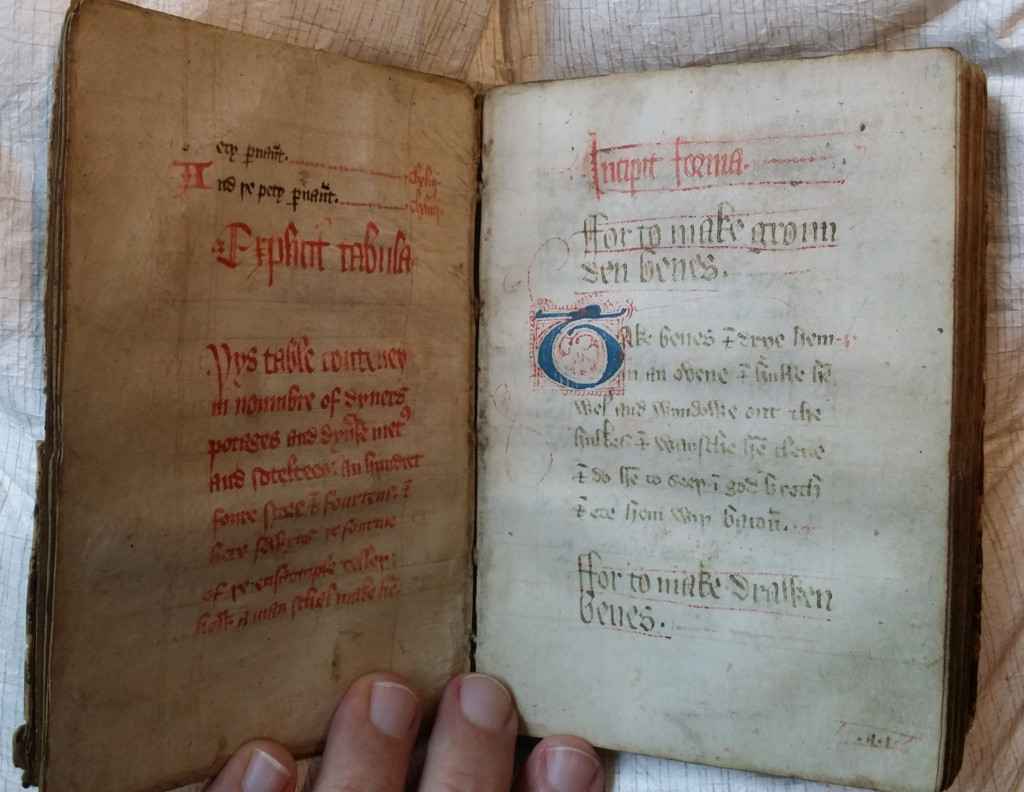 ety ꝑnaūt.
And þe pety ꝑnaūt.
Explicit tabula
Þys table conteney
in noumbre of dyuers
potages and dyuse met
and soteltees. an hundret
foure score & fourtene. &
here folwyng þe fourme
of þe ensaumple
how a man schal make hē
Incipit forma.
ffor to make groun
den benes.
Take benes & drye hem
in an ovene & hulle hē
wel and wyndowe out the
hulkes & waysche hē clene
& do hē to seeþ ī god broth
& ete hem wiþ bacoū.
ffor to make drawen
benes.